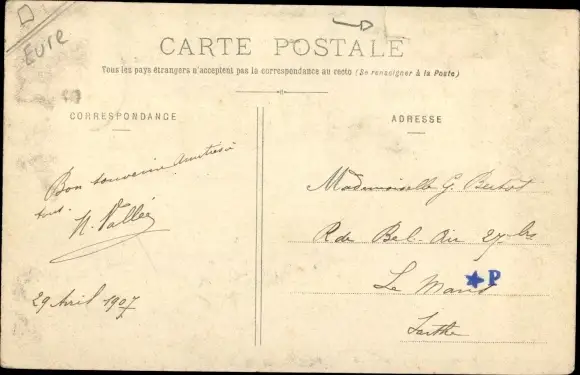 Eure
CARTE POSTALE
Tous les pays étrangers n'acceptent pas la correspondance au recto (Se renseigner à la Poste)
CORRESPONDANCE
ADRESSE
Bon souvenir
tous.
N. Vallée
29 Avril 1907
Mademoiselle G.
R de Bel-Air 27 bis
Le Mans
Sarthe
P